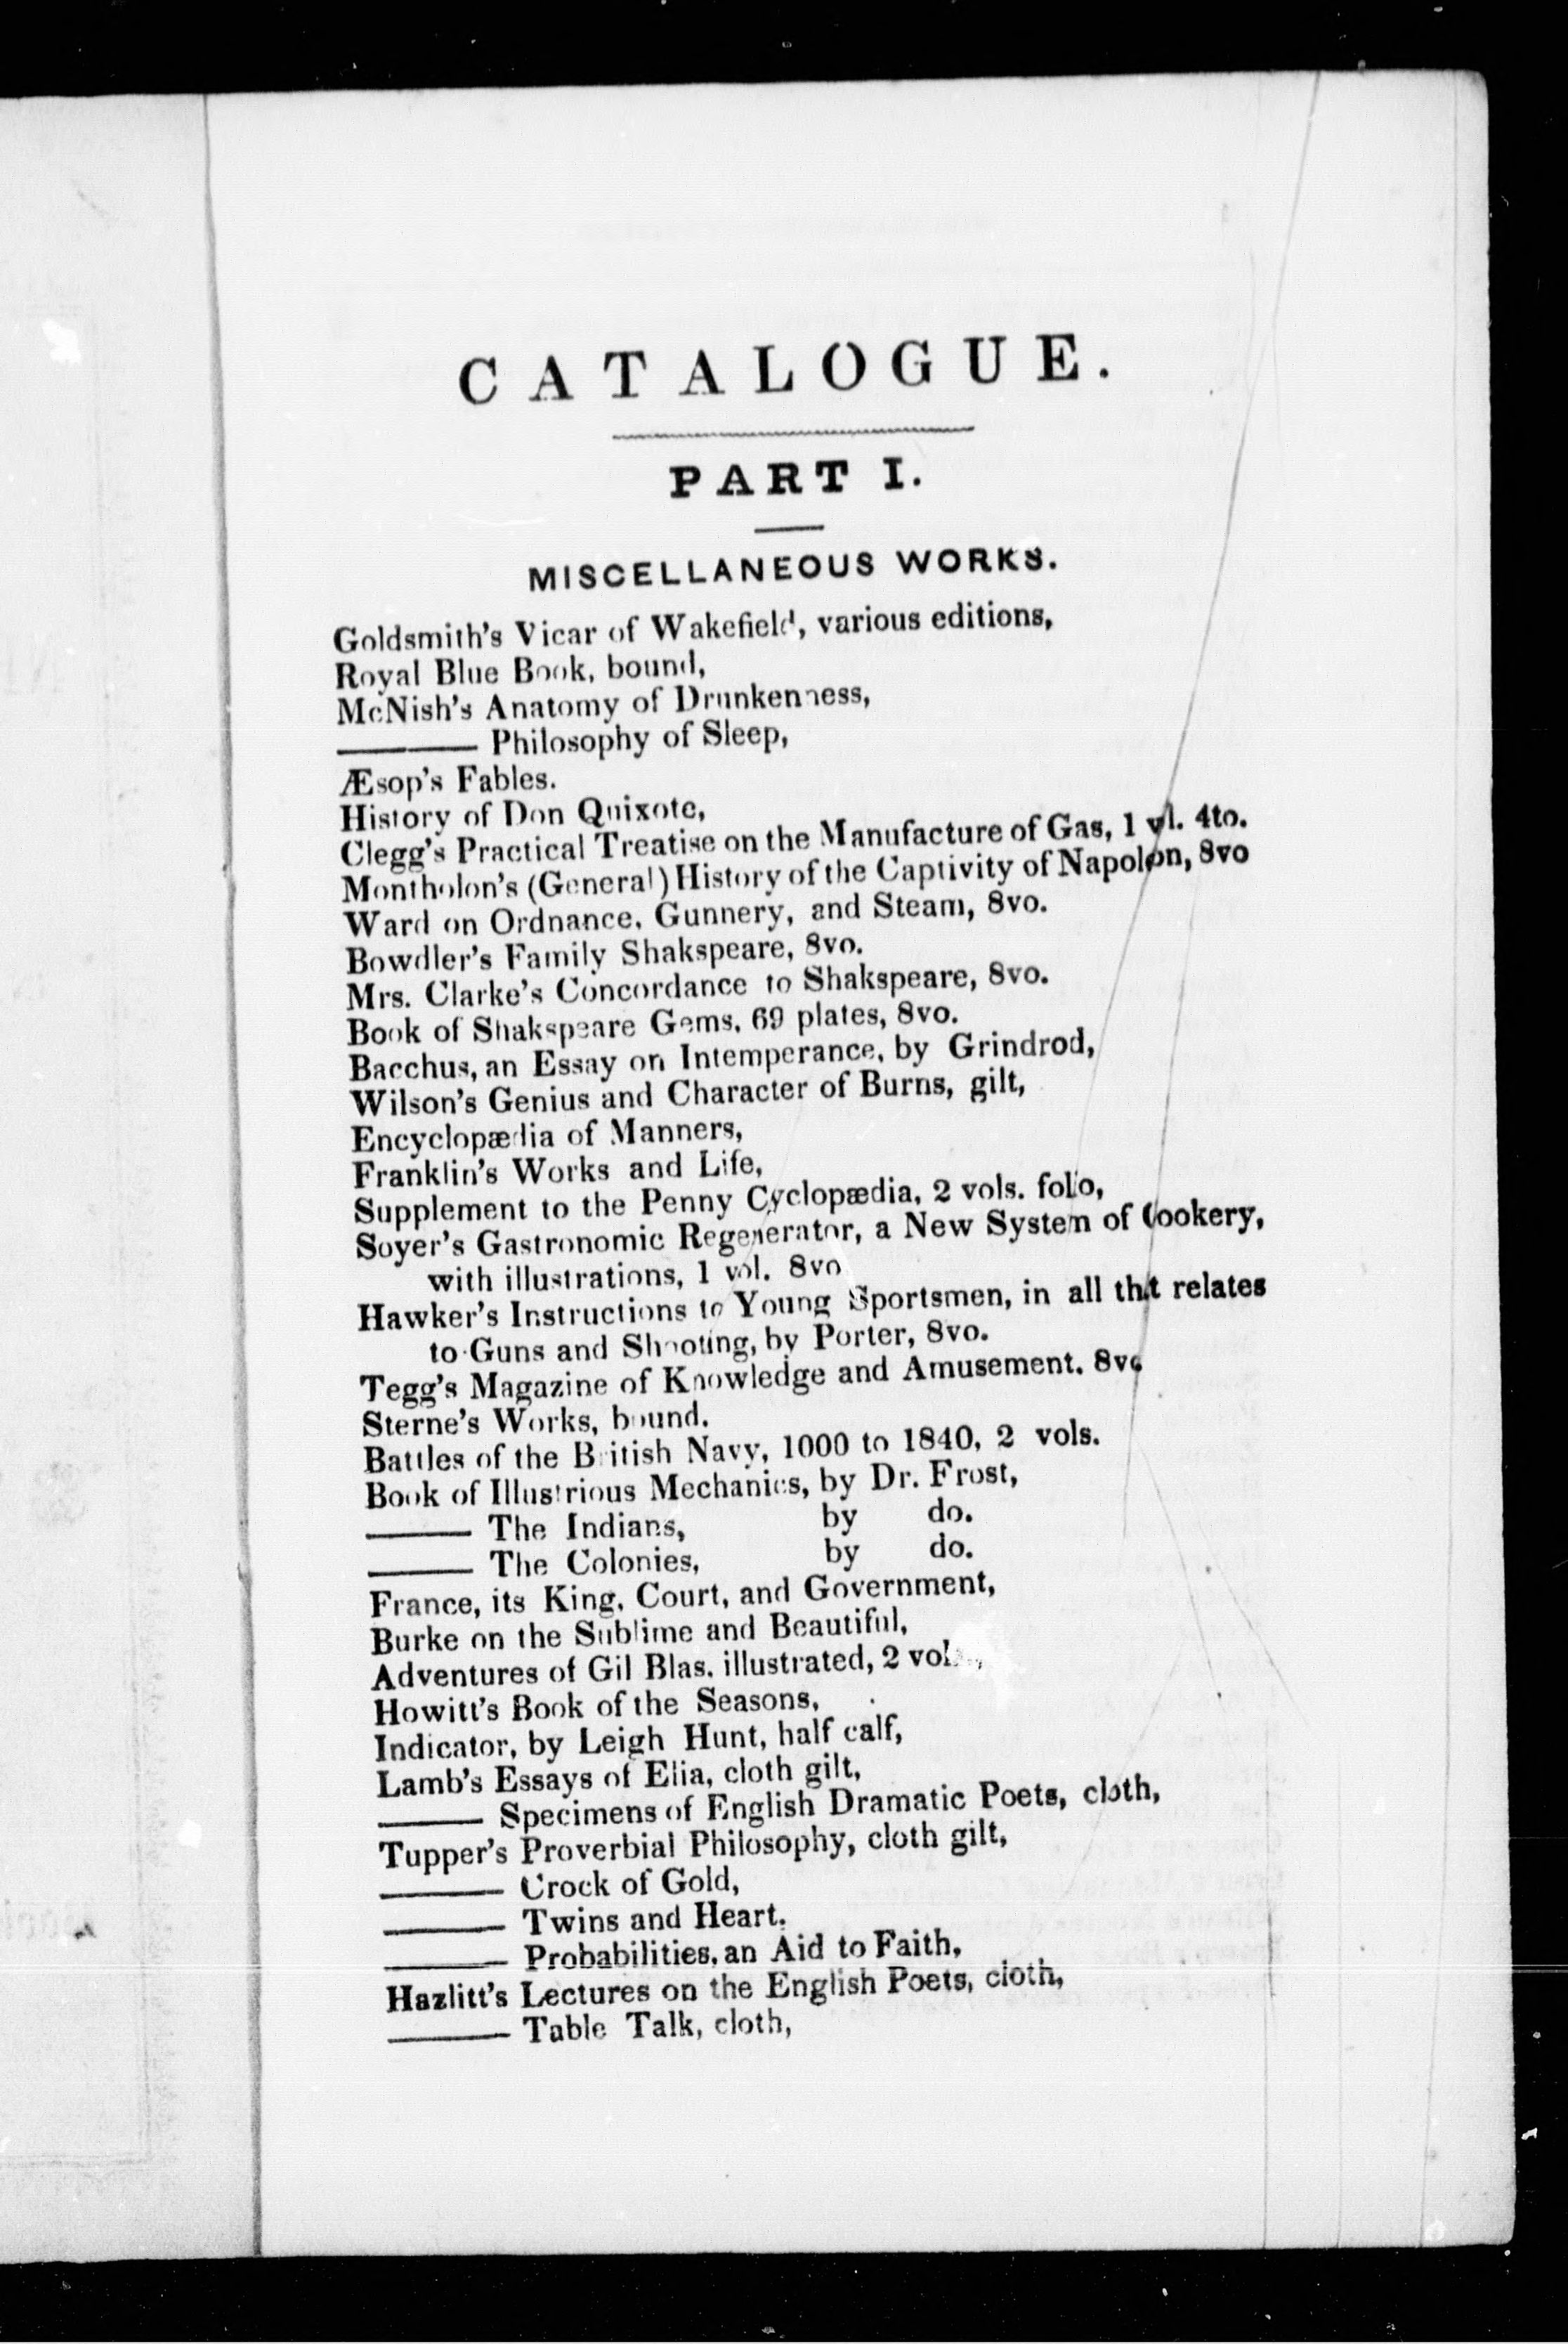 CATALOGUE.
PART I.
MISCELLANEOUS WORKS.
Goldsmith's Vicar of Wakefield, various editions,
Royal Blue Book, bound,
McNish's Anatomy of Drunkenness,
——— Philosophy of Sleep,
Æsop's Fables.
History of Don Quixote,
Clegg's Practical Treatise on the Manufacture of Gas, 1 vl. 4to.
Montholon's (General) History of the Captivity of Napoleon, 8vo
Ward on Ordnance, Gunnery, and Steam, 8vo.
Bowdler's Family Shakspeare, 8vo.
Mrs. Clarke's Concordance to Shakspeare, 8vo.
Book of Shakspeare Gems, 69 plates, 8vo.
Bacchus, an Essay on Intemperance, by Grindrod,
Wilson's Genius and Character of Burns, gilt,
Encyclopædia of Manners,
Franklin's Works and Life,
Supplement to the Penny Cyclopædia, 2 vols. folio,
Soyer's Gastronomic Regenerator, a New System of Cookery,
with illustrations, 1 vol. 8vo
Hawker's Instructions to Young Sportsmen, in all that relates
to Guns and Shooting, by Porter, 8vo.
Tegg's Magazine of Knowledge and Amusement. 8vo
Sterne's Works, bound.
Battles of the British Navy, 1000 to 1840, 2 vols.
Book of Illustrious Mechanics, by Dr. Frost,
——— The Indians, by do.
——— The Colonies, by do.
France, its King, Court, and Government,
Burke on the Sublime and Beautiful,
Adventures of Gil Blas. illustrated, 2 vols.,
Howitt's Book of the Seasons,
Indicator, by Leigh Hunt, half calf,
Lamb's Essays of Elia, cloth gilt,
——— Specimens of English Dramatic Poets, cloth,
Tupper's Proverbial Philosophy, cloth gilt,
——— Crock of Gold,
——— Twins and Heart.
——— Probabilities, an Aid to Faith,
Hazlitt's Lectures on the English Poets, cloth,
——— Table Talk, cloth,